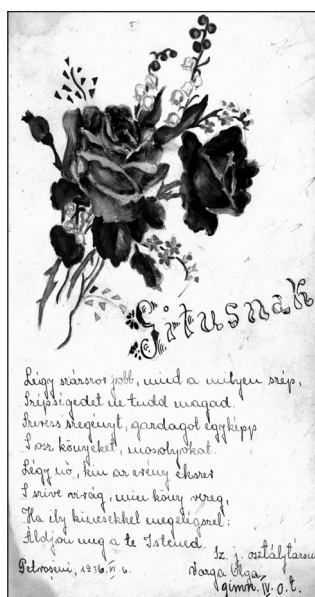 Gitusnak
Légy százszor jobb, mind a milyen szép,
Szépségedet ne tudd magad.
Szeress szegényt, gazdagot egyképp
S osz könyeket, mosolyokat.
Légy nő, kin az erény ékszer
S szive virág, min köny rezeg,
Ha ily kincsekkel megelégszel:
Áldjon meg a te Istened.
Sz. j. osztálytársad
Petroseni, 1936. VI. 6.
Varga Olga
gimn. IV. o. t.